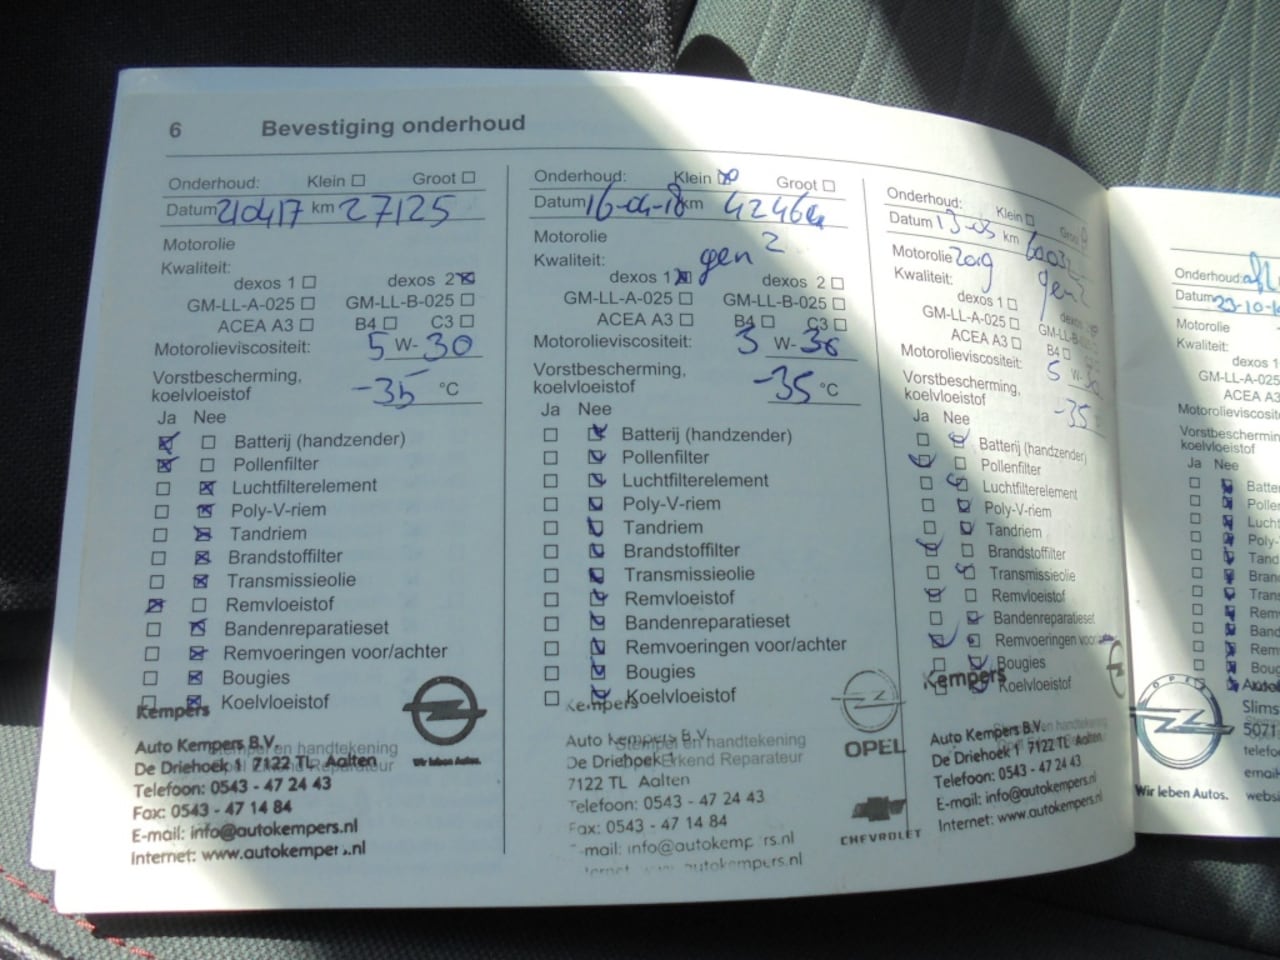 6 Bevestiging onderhoud
Onderhoud: Klein Groot
Datum 210417 km 27125
Motorolie
Kwaliteit:
dexos 1 dexos 2
GM-LL-A-025 GM-LL-B-025
ACEA A3 B4 C3
Motorolieviscositeit: 5 W- 30
Vorstbescherming,
koelvloeistof -35 °C
Ja Nee
Batterij (handzender)
Pollenfilter
Luchtfilterelement
Poly-V-riem
Tandriem
Brandstoffilter
Transmissieolie
Remvloeistof
Bandenreparatieset
Remvoeringen voor/achter
Bougies
Koelvloeistof
Kempers
Auto Kempers B.V.
Stempel en handtekening
De Driehoek 1 7122 TL Aalten
Opel Erkend Reparateur
Telefoon: 0543 - 47 24 43
Fax: 0543 - 47 14 84
E-mail: info@autokempers.nl
Internet: www.autokempers.nl
Wir leben Autos.
Onderhoud: Klein Groot
Datum 16-04-18 km
Motorolie gen 2
Kwaliteit:
dexos 1 dexos 2
GM-LL-A-025 GM-LL-B-025
ACEA A3 B4 C3
Motorolieviscositeit: W- 30
Vorstbescherming,
koelvloeistof -35 °C
Ja Nee
Batterij (handzender)
Pollenfilter
Luchtfilterelement
Poly-V-riem
Tandriem
Brandstoffilter
Transmissieolie
Remvloeistof
Bandenreparatieset
Remvoeringen voor/achter
Bougies
Koelvloeistof
Kempers
Auto Kempers B.V.
Stempel en handtekening
De Driehoek
Opel Erkend Reparateur
7122 TL Aalten
Telefoon: 0543 - 47 24 43
Fax: 0543 - 47 14 84
info@autokempers.nl
autokempers.nl
OPEL
CHEVROLET
Onderhoud: Klein Groot
Datum 13-05 km
Motorolie 2019 gen 2
Kwaliteit:
dexos 1 dexos 2
GM-LL-A-025 GM-LL-B-025
ACEA A3 B4
Motorolieviscositeit: 5 W- 30
Vorstbescherming,
koelvloeistof -35
Ja Nee
Batterij (handzender)
Pollenfilter
Luchtfilterelement
Poly-V-riem
Tandriem
Brandstoffilter
Transmissieolie
Remvloeistof
Bandenreparatieset
Remvoeringen
Bougies
Koelvloeistof
Kempers
Auto Kempers B.V.
handtekening
De Driehoek 1 7122 TL Aalten
Telefoon: 0543 - 47 24 43
E-mail: info@autokempers.nl
Internet: www.autokempers.nl
Onderhoud:
Datum 23-10-
Motorolie
Kwaliteit:
dexos 1
GM-LL-A-025
ACEA A3
Vorstbescherming
koelvloeistof
Ja Nee
OPEL
Slims
5071
Wir leben Autos.